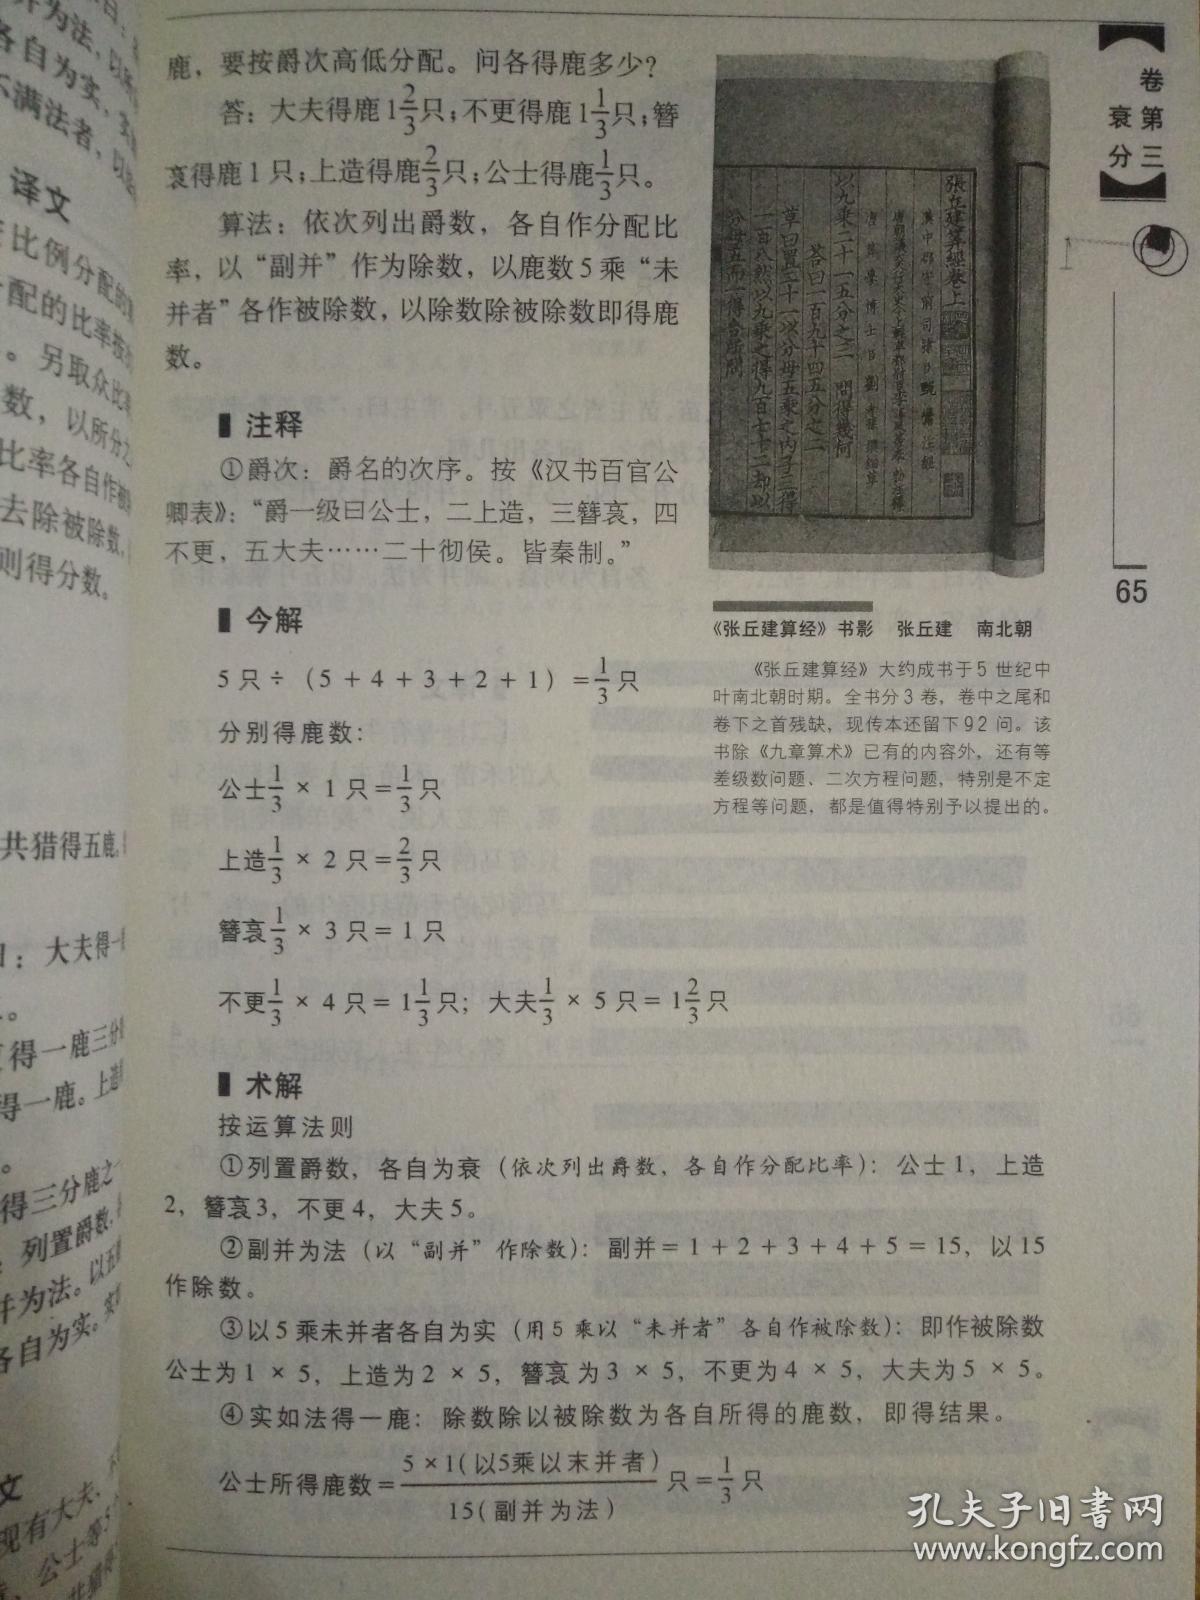 鹿，要按爵次高低分配。问各得鹿多少？
答：大夫得鹿1 2/3只；不更得鹿1 1/3只；簪
袅得鹿1只；上造得鹿2/3只；公士得鹿1/3只。
算法：依次列出爵数，各自作分配比
率，以“副并”作为除数，以鹿数5乘“未
并者”各作被除数，以除数除被除数即得鹿
数。
注释
①爵次：爵名的次序。按《汉书百官公
卿表》：“爵一级曰公士，二上造，三簪袅，四
不更，五大夫……二十彻侯。皆秦制。”
今解
5只÷（5＋4＋3＋2＋1）＝1/3只
分别得鹿数：
公士1/3×1只＝1/3只
上造1/3×2只＝2/3只
簪袅1/3×3只＝1只
不更1/3×4只＝1 1/3只；大夫1/3×5只＝1 2/3只
术解
按运算法则
①列置爵数，各自为衰（依次列出爵数，各自作分配比率）：公士1，上造
2，簪袅3，不更4，大夫5。
②副并为法（以“副并”作除数）：副并＝1＋2＋3＋4＋5＝15，以15
作除数。
③以5乘未并者各自为实（用5乘以“未并者”各自作被除数）：即作被除数
公士为1×5，上造为2×5，簪袅为3×5，不更为4×5，大夫为5×5。
④实如法得一鹿：除数除以被除数为各自所得的鹿数，即得结果。
公士所得鹿数＝5×1(以5乘以末并者)/15(副并为法)只＝1/3只
張丘建算經卷上
以九乘二十一五分之三 問得幾何
荅曰一百九十四五分之二
草曰置二十一以分母五乘之内子三得
一百八然以九乘之得九百七十二却以
分母五而一得合所問
《张丘建算经》书影 张丘建 南北朝
《张丘建算经》大约成书于5世纪中
叶南北朝时期。全书分3卷，卷中之尾和
卷下之首残缺，现传本还留下92问。该
书除《九章算术》已有的内容外，还有等
差级数问题、二次方程问题，特别是不定
方程等问题，都是值得特别予以提出的。
卷第三
衰分
65
为法，以所
各自为实，
不满法者，以
译文
比例分配的
配的比率按
。另取众比率
数，以所分之
比率各自作被
去除被除数，
则得分数。
共猎得五鹿，
：大夫得一
得一鹿三分
得一鹿。上造
得三分鹿之一
列置爵数，
并为法。以五
各自为实。实
文
现有大夫、不
公士等5
孔夫子旧书网
www.kongfz.com